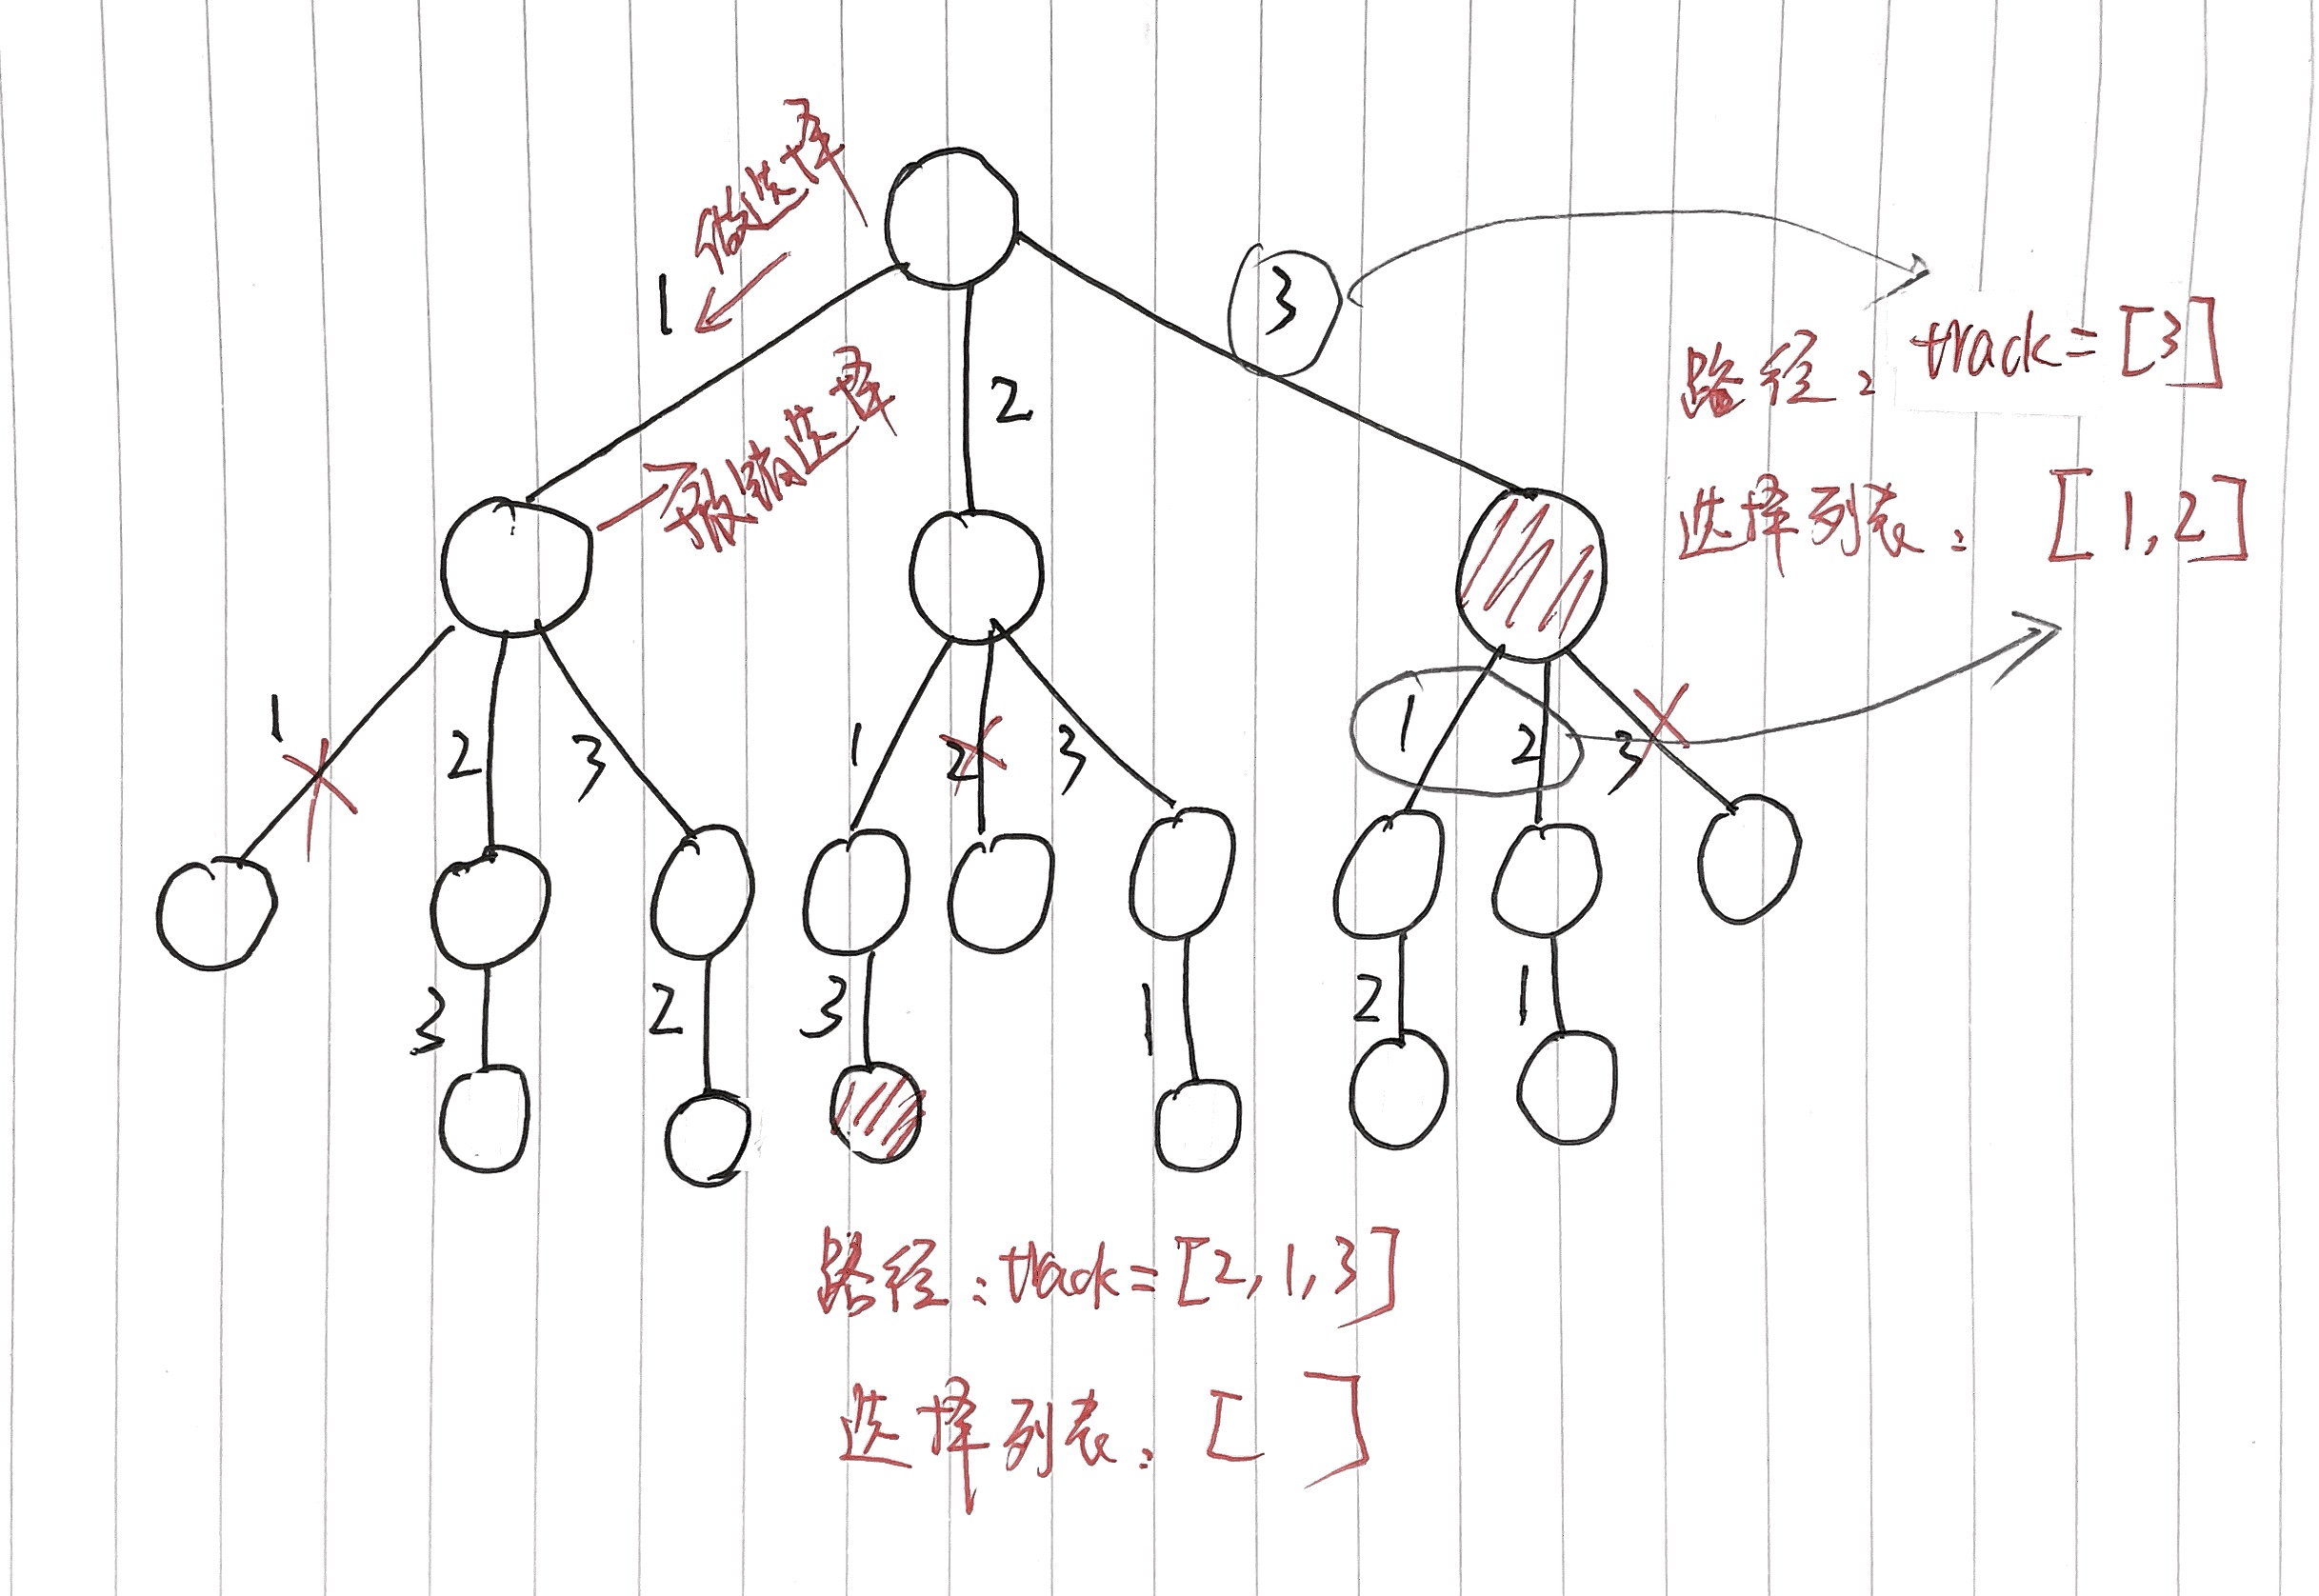 做选择
1
3
路径：track=[3]
撤销选择
2
选择列表：[1,2]
1
2
3
1
2
3
1
2
3
3
2
3
1
2
1
路径：track=[2,1,3]
选择列表：[ ]